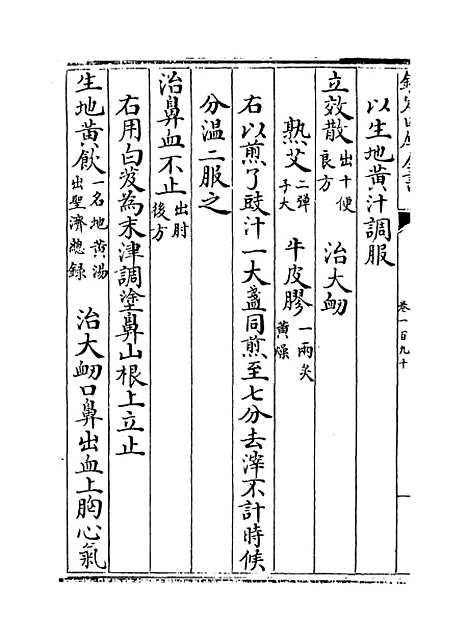 欽定四庫全書
卷一百九十
以生地黄汁調服
立效散出十便良方　治大衂
熟艾二彈子大　牛皮膠一兩炙黄燥
右以煎了豉汁一大盞同煎至七分去滓不計時候
分温二服之
治鼻血不止出肘後方
右用白芨為末津調塗鼻山根上立止
生地黄飲一名地黄湯出聖濟總録　治大衂口鼻出血上胸心氣